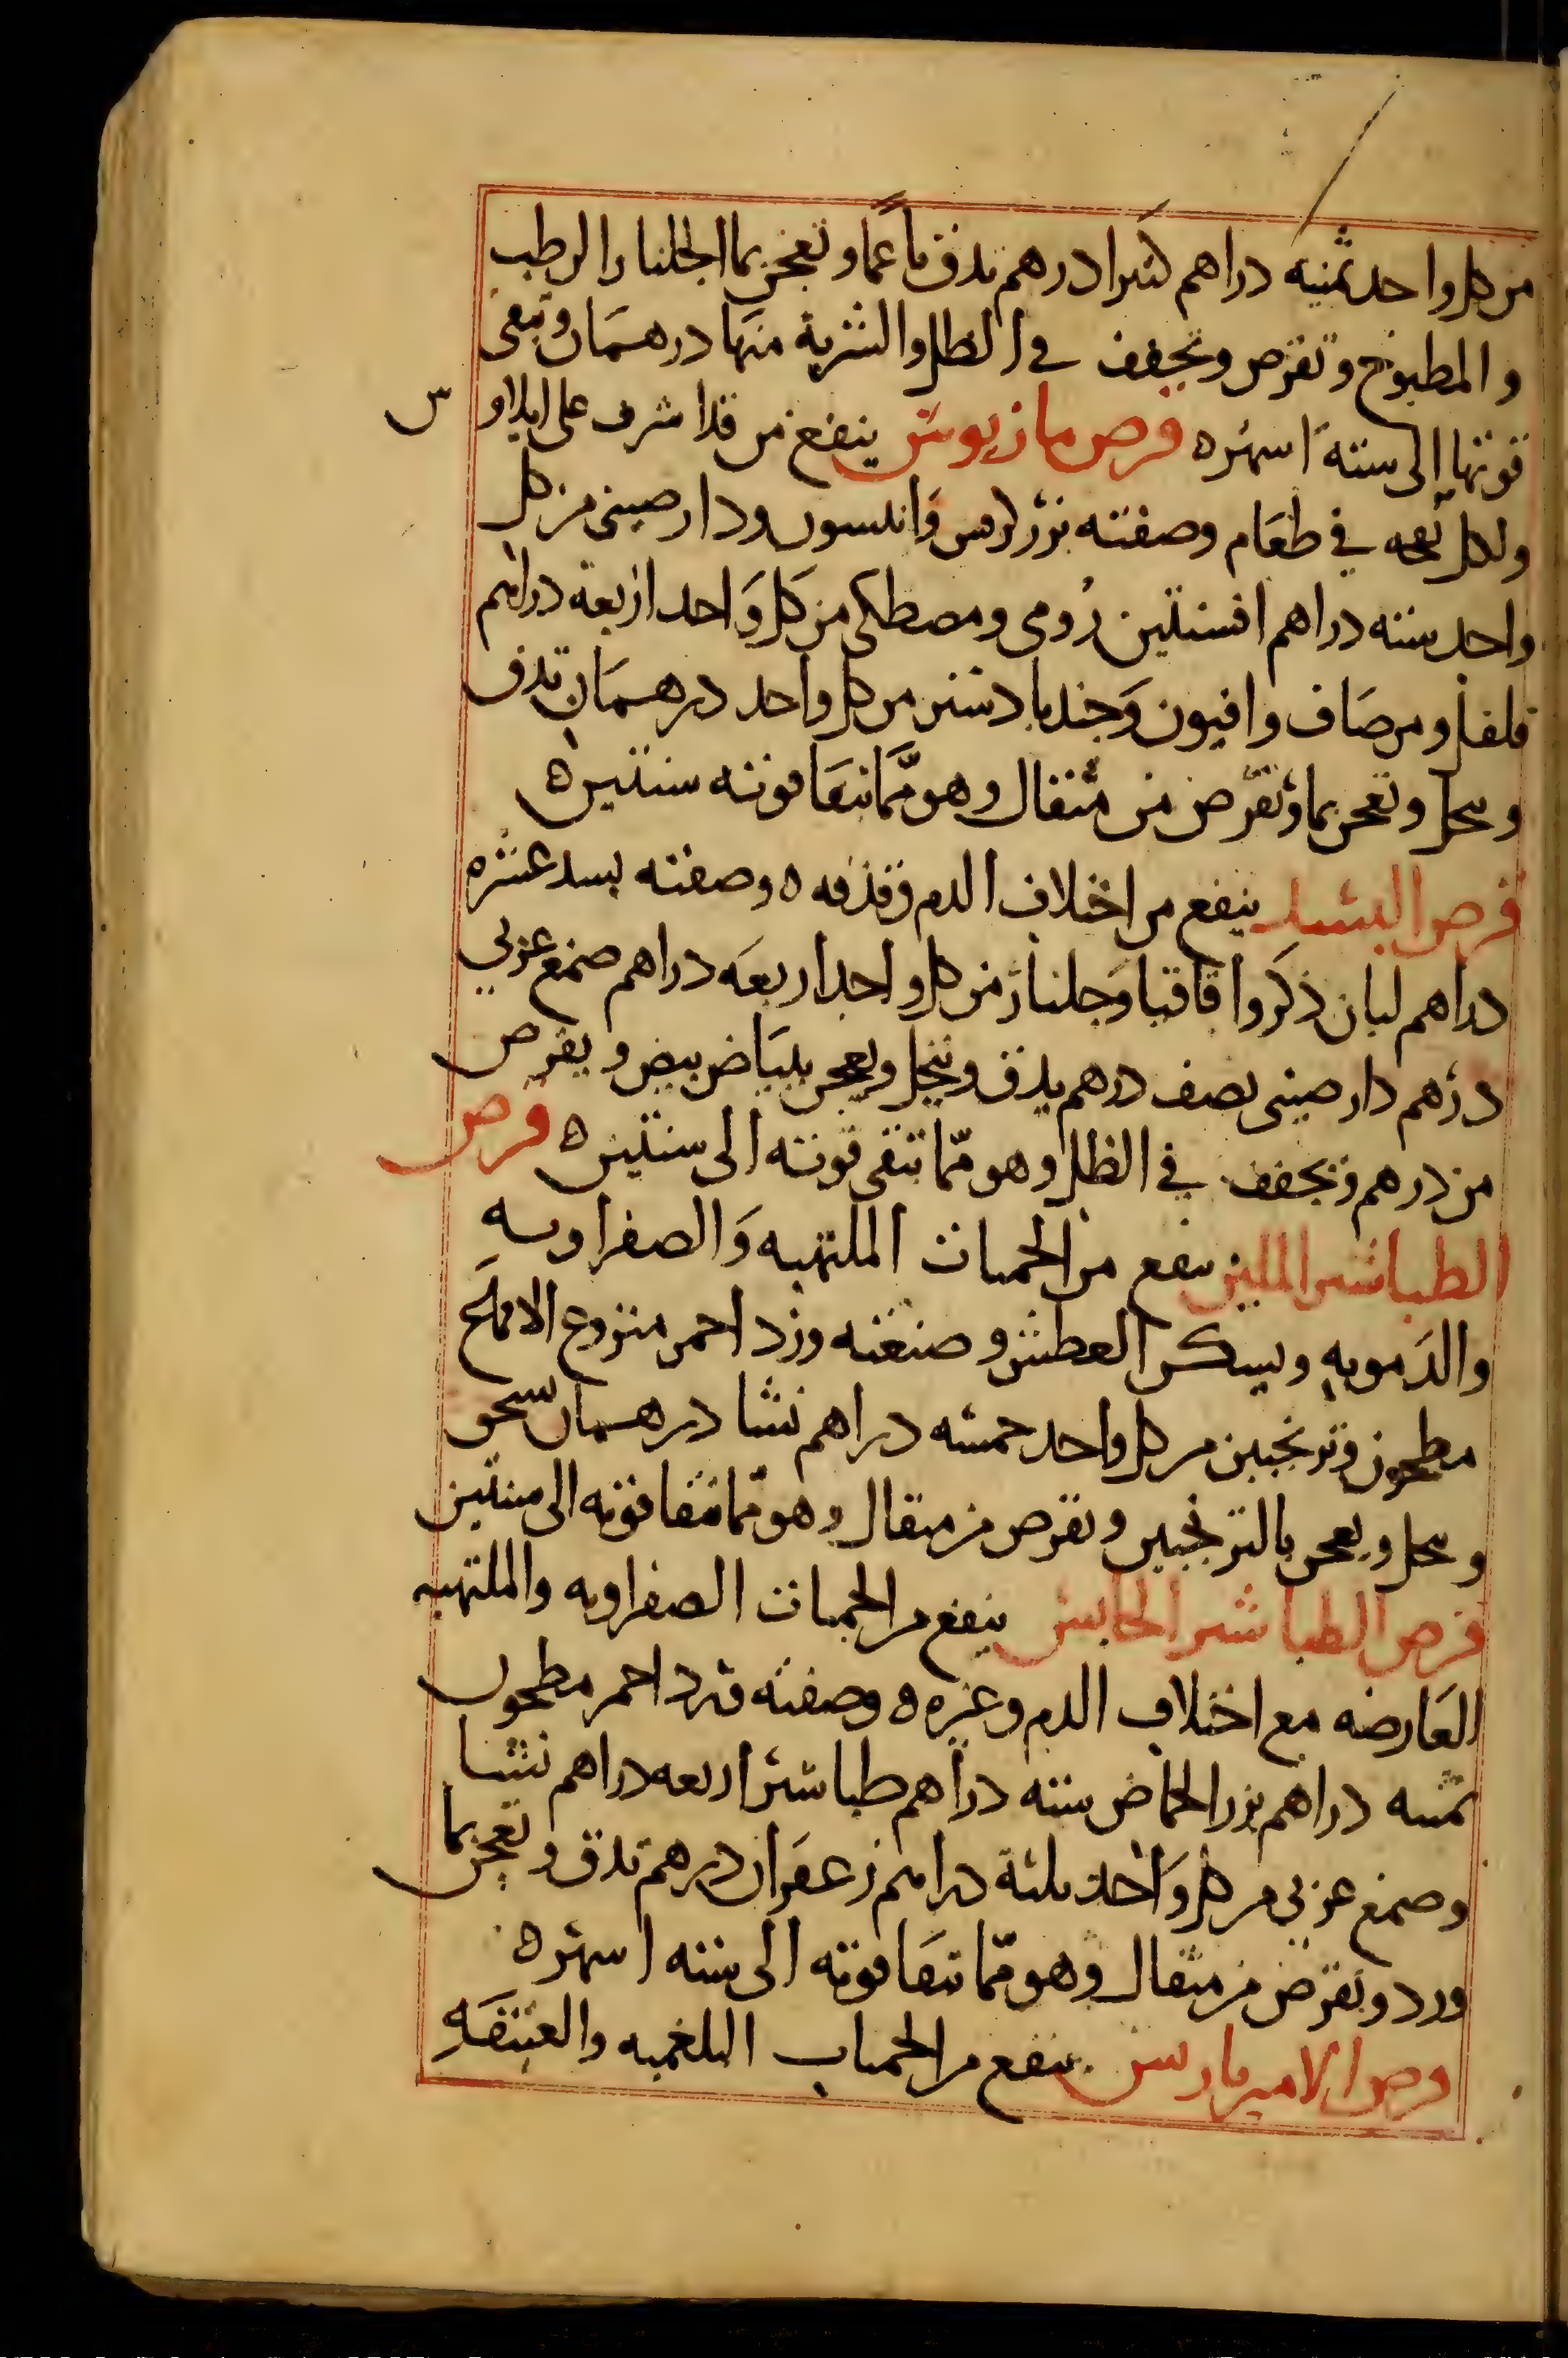 من كل واحد ثمنيه دراهم كثيرا درهم يدق ناعما وتعجن بما الجلنار الرطب
والمطبوخ وتقرص وتجفف في الظل والشربة منها درهمان وتبقى
قوتها إلى ستة اسهره قرص مازريوس ينفع من قد اشرف على ايلاوس
ولكل في طعام وصفته بزر كرفس وانيسون ودارصيني من كل
واحد سته دراهم افسنتين رومى ومصطكى من كل واحد اربعة دراهم
فلفل ومر صاف وافيون وجندبادستر من كل واحد درهمان تدق
وينخل وتعجن بما وتقرص من مثقال وهو مما تبقا قوته سنتين ه
قرص البسد ينفع من اختلاف الدم وقذفه ه وصفته بسد عشره
دراهم لبان ذكر واقاقيا وجلنار من كل واحد اربعه دراهم صمغ عربي
درهم دارصيني نصف درهم يدق وينخل ويعجن ببياض بيض ويقرص
من درهم وتجفف في الظل وهو مما تبقى قوته الى سنتين ه قرص
الطباشير الملين ينفع من الحميات الملتهبه والصفراويه
والدمويه ويسكن العطش وصنعته ورد احمر منزوع الاقماع
مطحون وترنجبين من كل واحد خمسه دراهم نشا درهمان يسحق
وينخل ويعجن بالترنجبين وتقرص من مثقال وهو مما تبقا قوته الى سنتين
قرص الطباشير الحابس ينفع من الحميات الصفراويه والملتهبه
العارضه مع اختلاف الدم وغيره ه وصفته ورد احمر مطحون
ثمنيه دراهم بزر الحماض سته دراهم طباشير اربعه دراهم نشا
وصمغ عربي من كل واحد ثلثة دراهم زعفران درهم تدق وتعجن بما
ورد وتقرص من مثقال وهو مما تبقا قوته الى سته اسهره
قرص الامير باريس ينفع من الحميات البلغميه والعتيقه